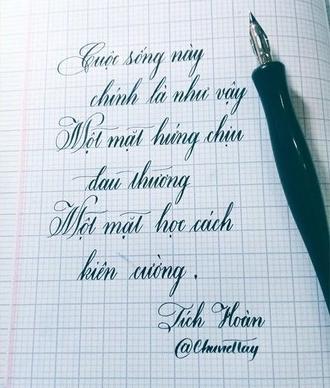 Cuộc sống này
chính là như vậy
Một mặt hứng chịu
đau thương
Một mặt học cách
kiên cường.
Tích Hoàn
@Chuviettay